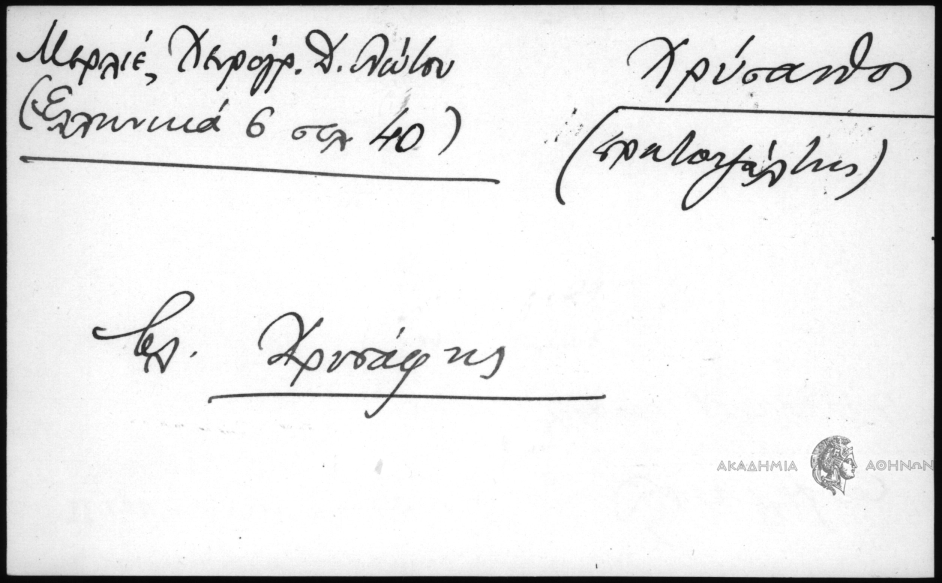 Μερλιέ, Χειρόγρ. Δ. Λώτου
(Ελληνικά 6 σελ 40)
Χρύσανθος
(πρωτοψάλτης)
βλ. Χρυσάφης
ΑΚΑΔΗΜΙΑ ΑΘΗΝΩΝ